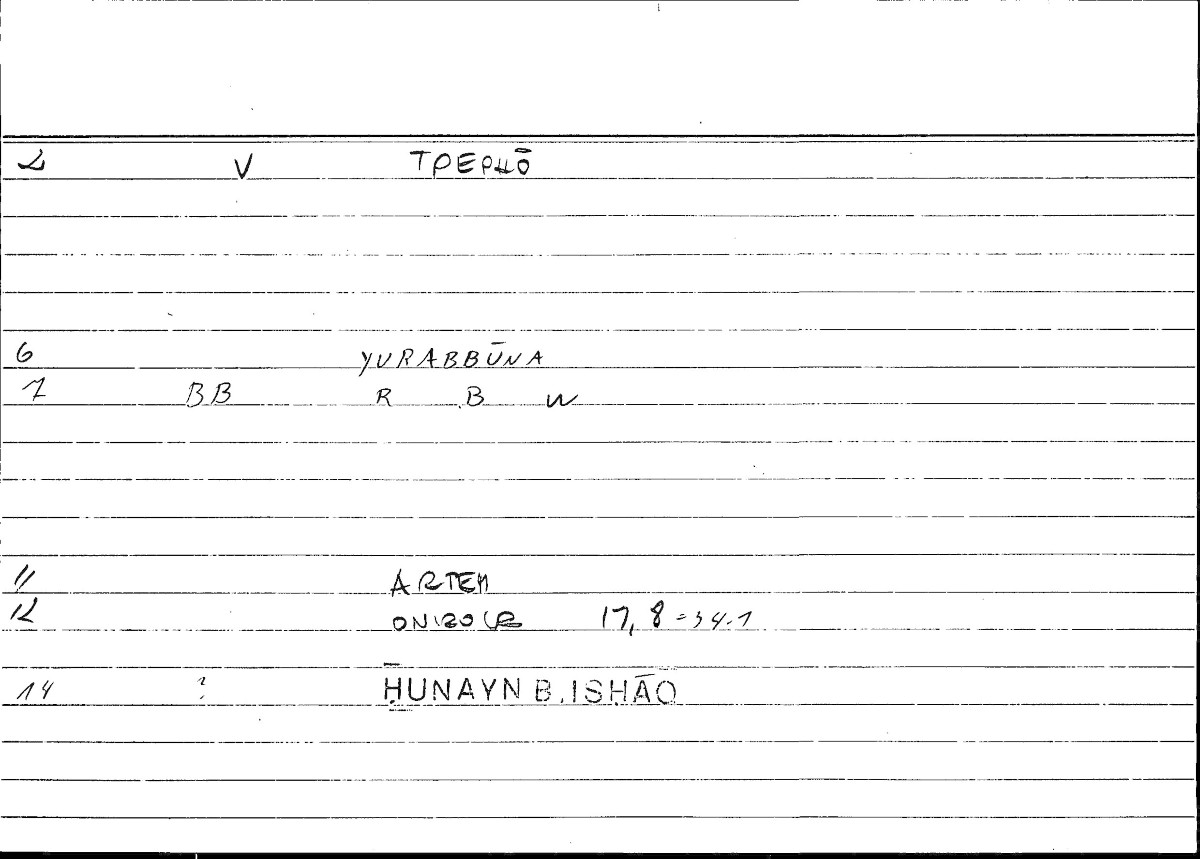 2 V ΤΡΕΡΗŌ
6 YURABBŪNA
7 BB R B W
11 ARTEM
12 ONIROCR 17,8 = 34.1
14 ? ḤUNAYN B. ISḤĀQ